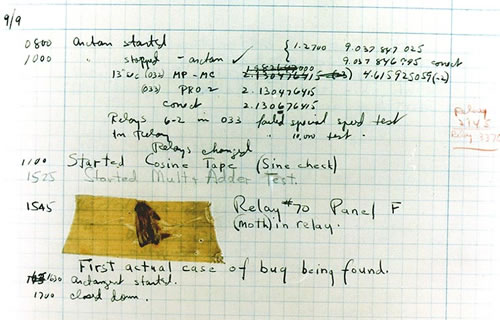 9/9
0800 antan started
1000 " stopped - antan ✓ { 1.2700 9.037 847 025
9.037 846 995 correct
13"uc (032) MP-MC 2.130476415 4.615925059(-2)
(033) PRO 2 2.130476415
correct 2.130676415
Relays 6-2 in 033 failed special speed test
In Relay " 10,000 test.
Relays changed
1100 Started Cosine Tape (Sine check)
1525 Started Mult+Adder Test.
1545 Relay #70 Panel F
(moth) in relay.
First actual case of bug being found.
1630 antangent started.
1700 closed down.
Relay
2145
Relay 3370